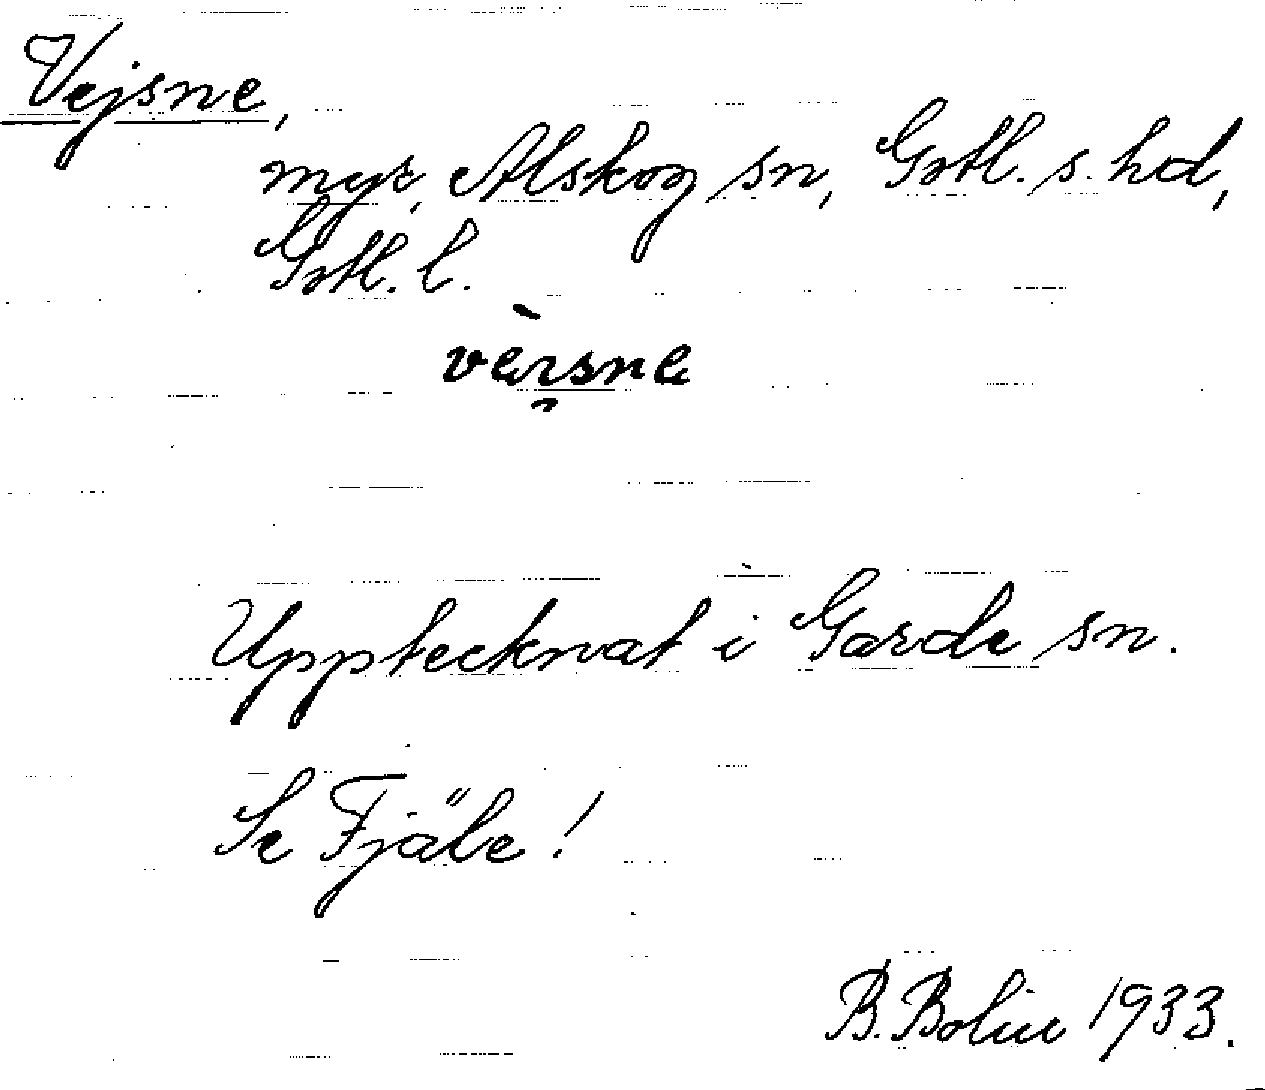 Vejsne,
myr, Alskog sn, Gotl. s. hd,
Gotl. l.
Upptecknat i Garde sn.
Se Fjäle!
B. Bolin 1933.